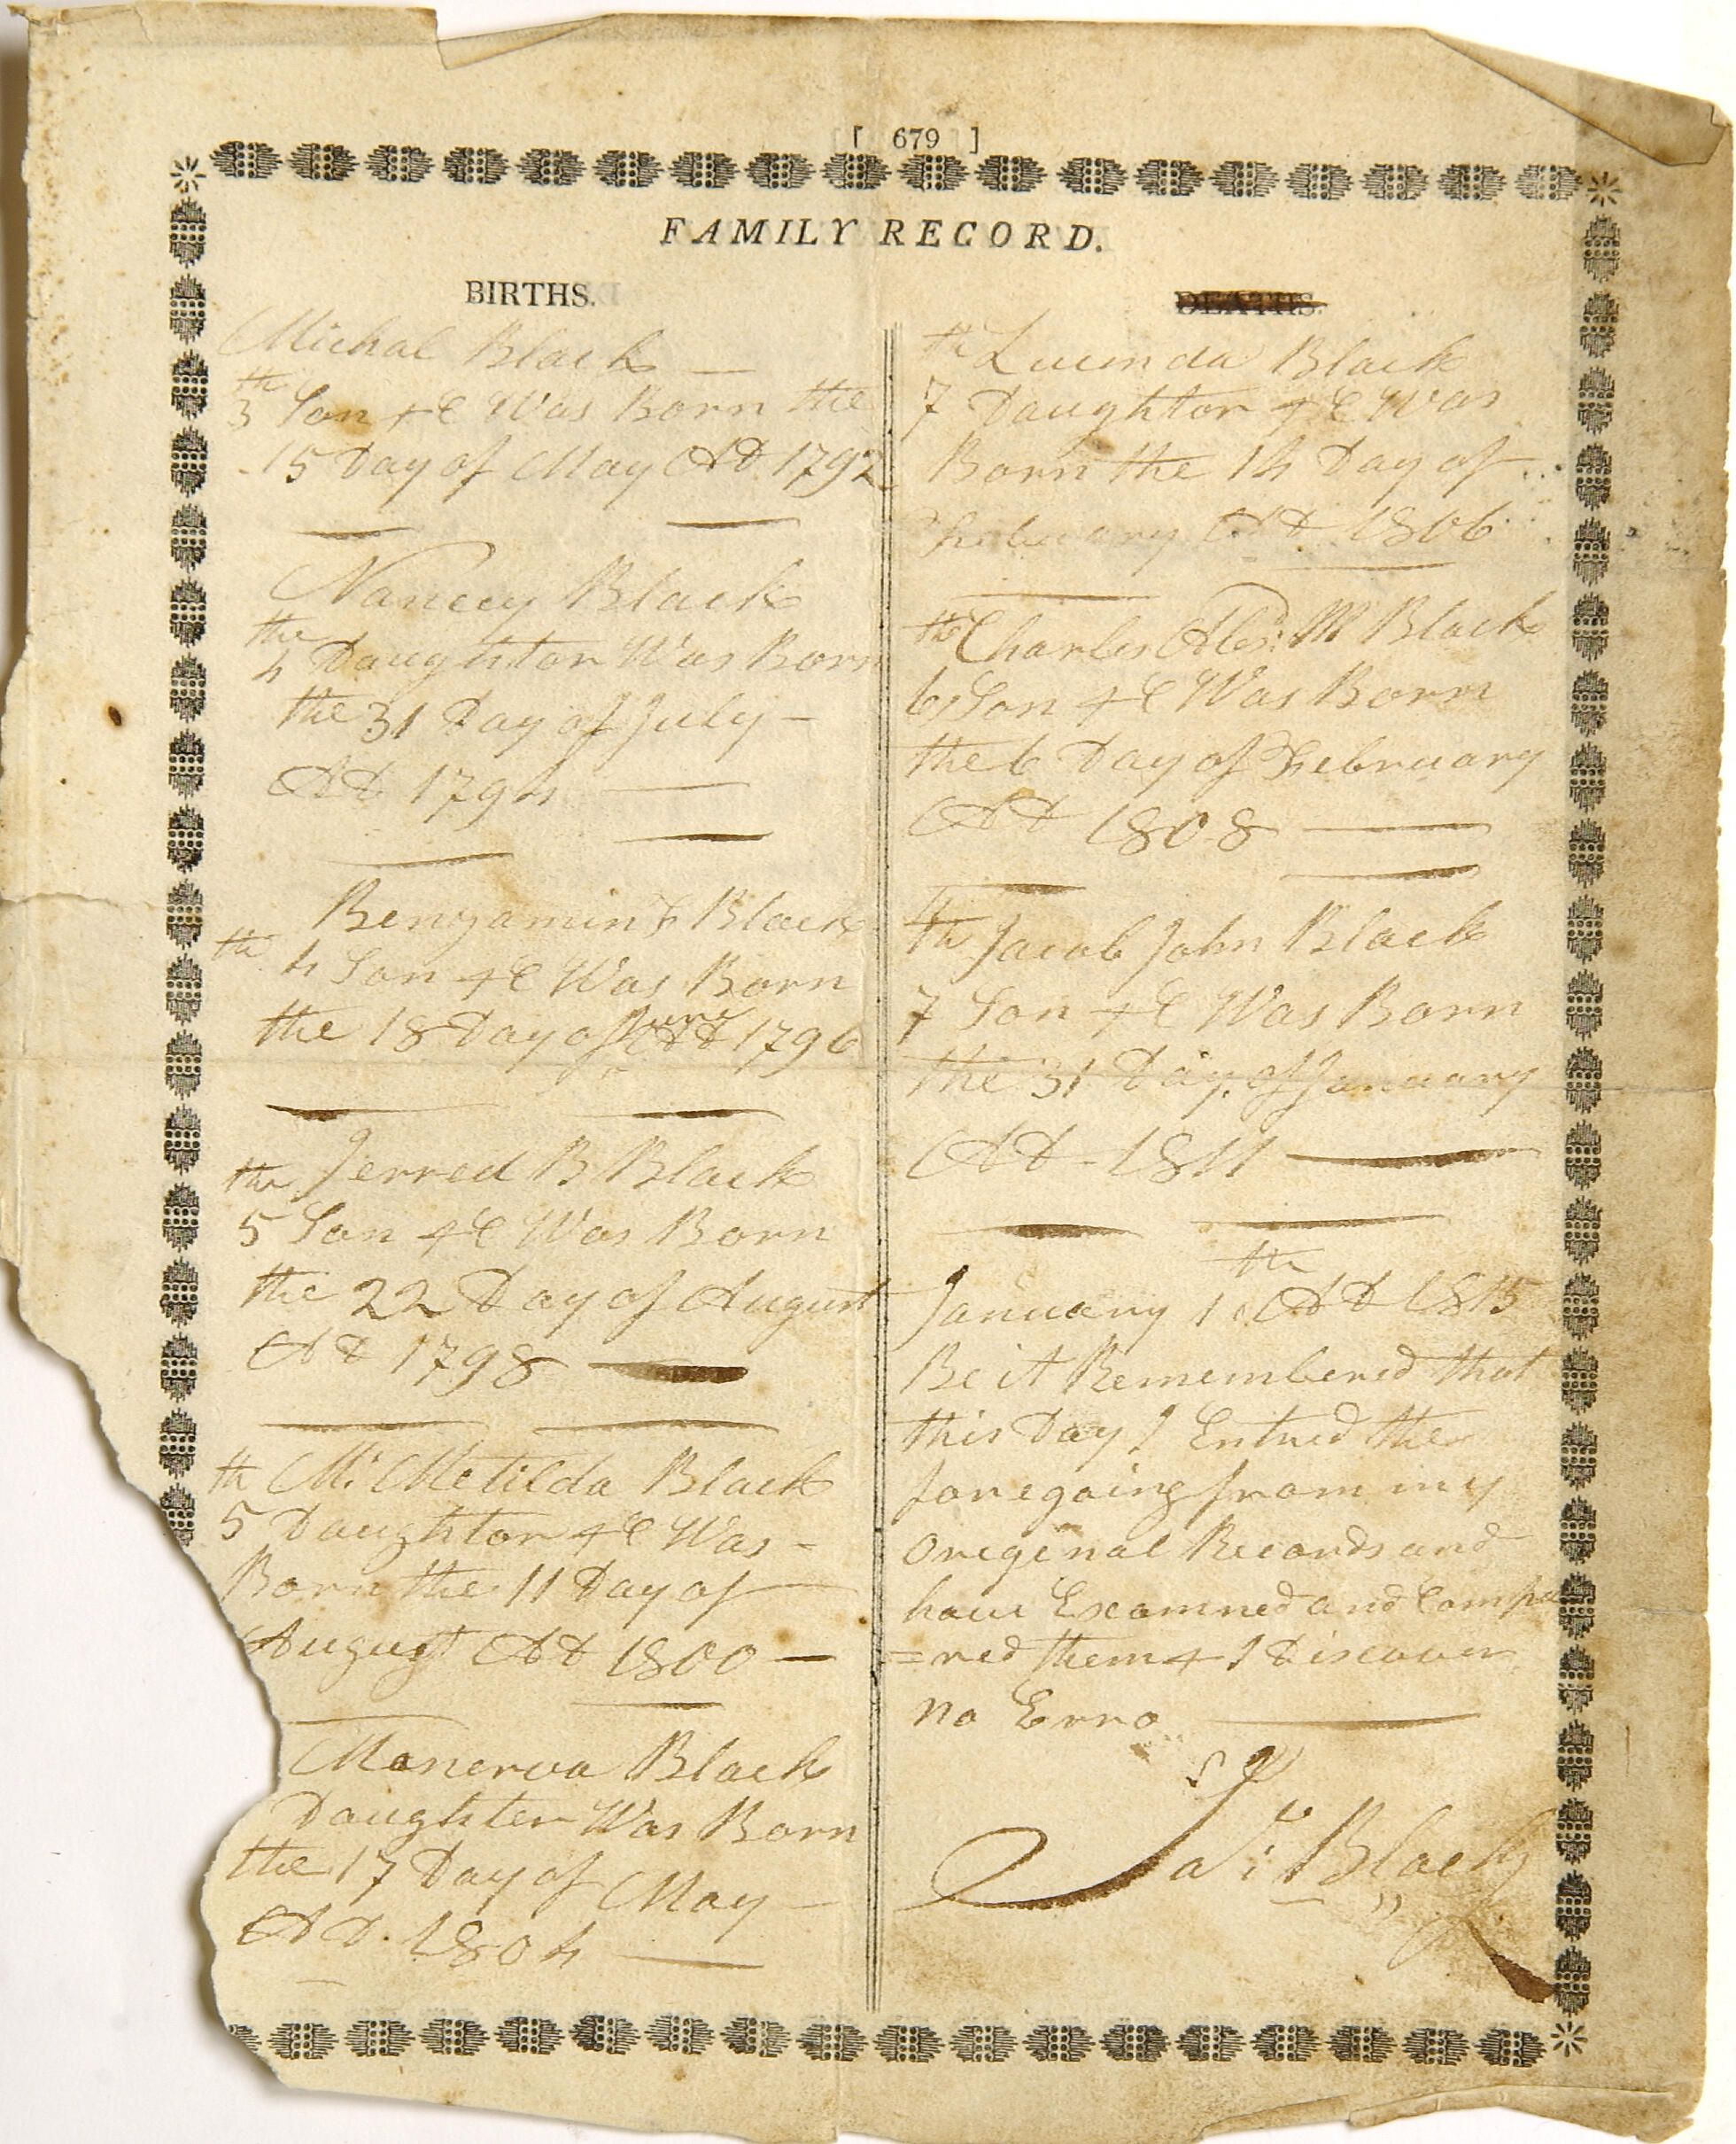 [ 679 ]
FAMILY RECORD.
BIRTHS.
Michal Black
th
3 Son & C Was Born the
15 Day of May AD 1792
Nancey Black
th
4 Daughter Was Born
the 31 Day of July
AD 1794
Benjamin F Black
th 4 Son & C Was Born
the 18 Day of June AD 1796
th Jerred B Black
5 Son & C Was Born
the 22 Day of August
AD 1798
th M. Metilda Black
5 Daughter & C Was
Born the 11 Day of
August AD 1800
Manerva Black
Daughter Was Born
the 17 Day of May
AD. 1804
DEATHS.
th Lucinda Black
7 Daughter & C Was
Born the 14 Day of
February AD 1806
th Charles Alexr. M Black
6 Son & C Was Born
the 6 Day of February
AD 1808
th Jacob John Black
7 Son & C Was Born
the 31 Day of January
AD 1811
th
January 1 AD 1815
Be it Remembered that
this Day I Entred the
foregoing from my
Oregenal Records and
have Examned and Compa
=red them & I Discover
no Erro
Black